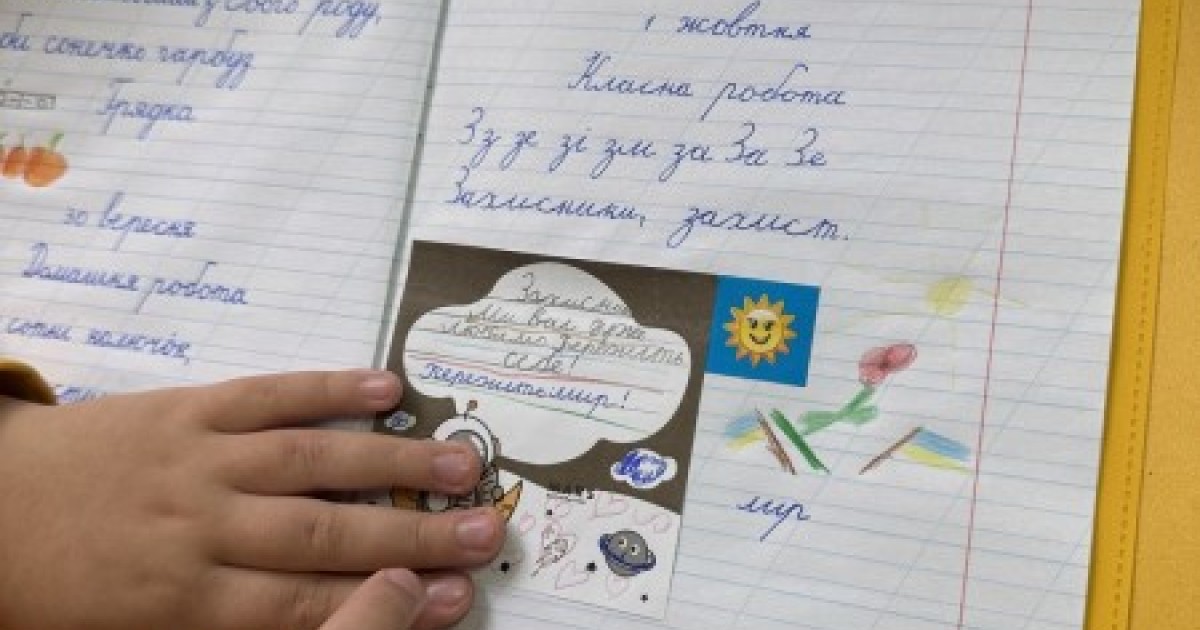 у свого роду,
сонечко гарбуз
Грядка
30 вересня
Домашня робота
сотки колючок,
1 жовтня
Класна робота
Зз зе зі зм за За Зе
Захисники, захист.
Ми вас дуже
любимо, бережіть
себе!
мир!
мир